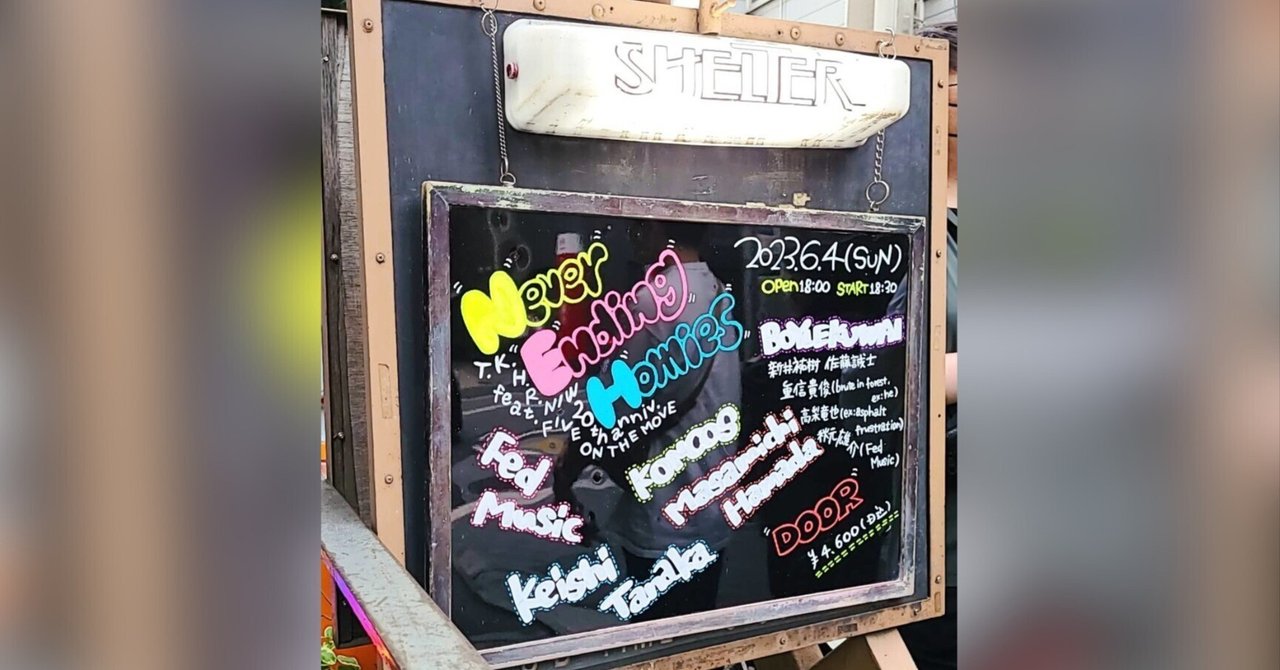 SHELTER
2023.6.4(SUN)
OPEN 18:00 START 18:30
"Never
Ending"
"Homies"
T.K.H.R.N/W
feat. FIVE
20th anniv.
ON THE MOVE
BOYUEKUWAI
新井祐樹 佐藤誠士
重信貴俊(brute in forest,
ex:he)
高梨竜也(ex:asphalt
frustration)
秋元雄介(Fed
Music)
Fed
Music
Komoog
Masamichi
Hamada
Keishi
Tanaka
"DOOR"
¥4.600(D込)